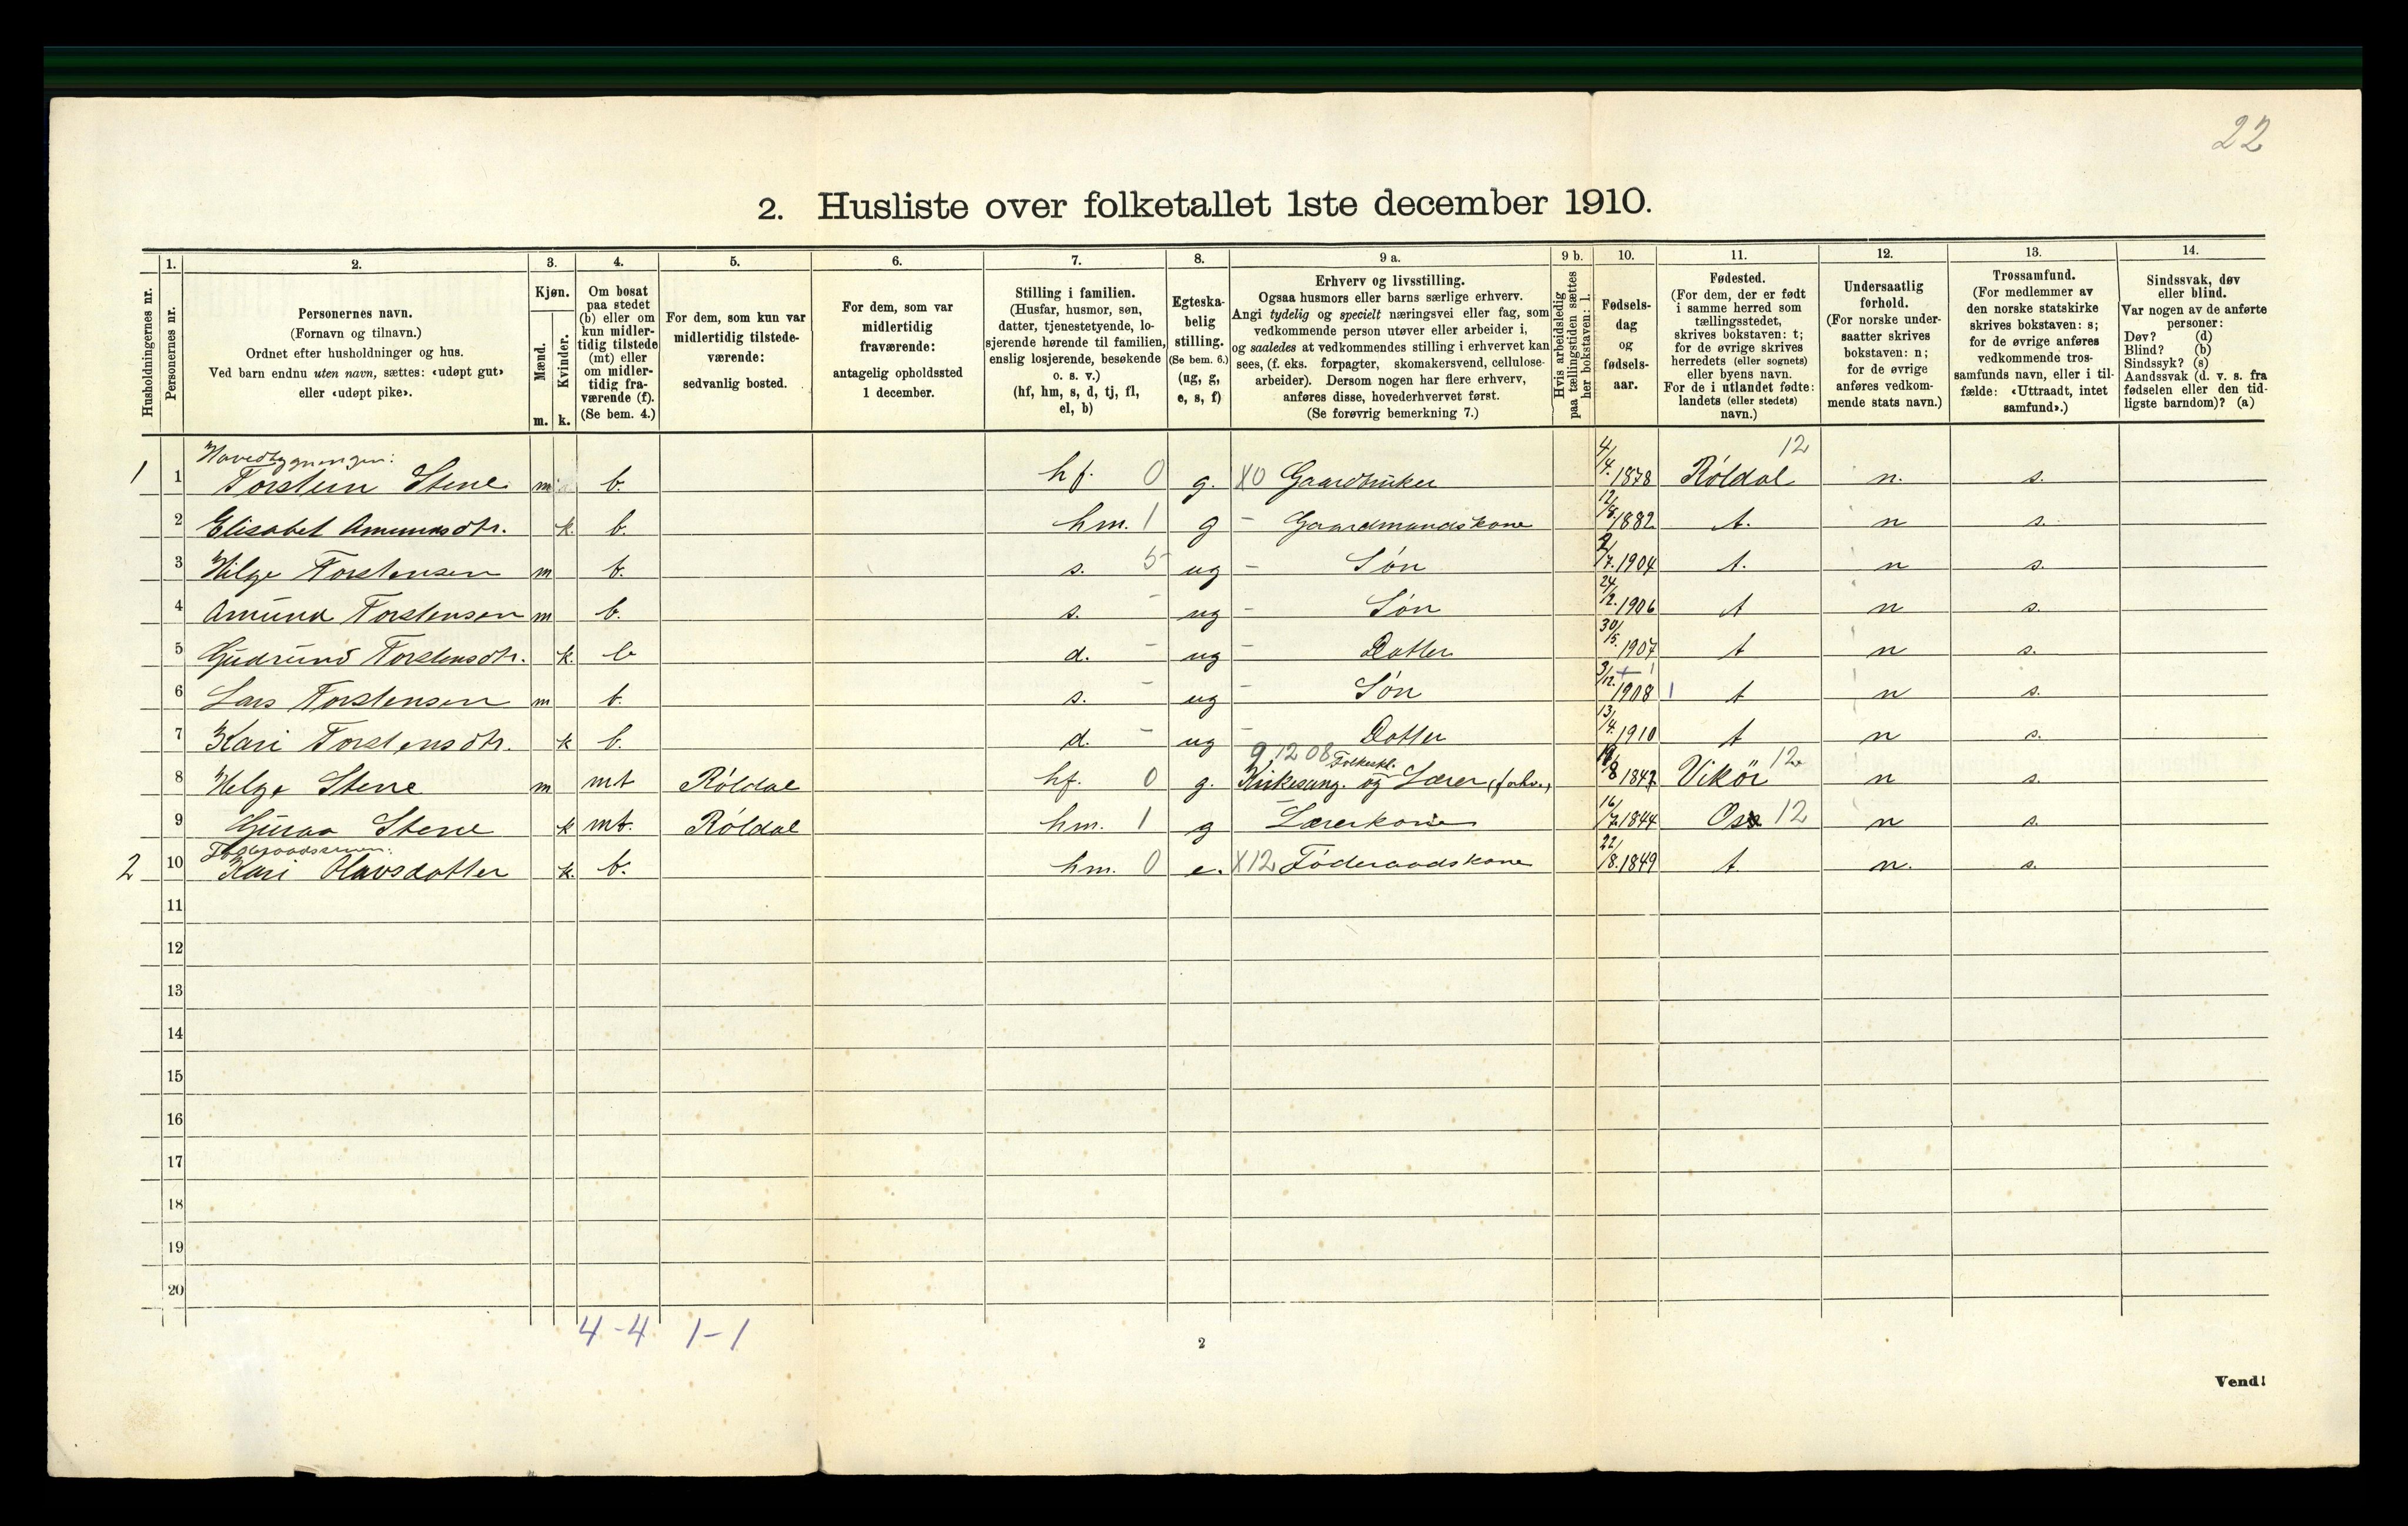 22
2. Husliste over folketallet 1ste december 1910.
Husholdningernes nr.
1.
Personernes nr.
2.
Personernes navn.
(Fornavn og tilnavn.)
Ordnet efter husholdninger og hus.
Ved barn endnu uten navn, sættes: «udøpt gut»
eller «udøpt pike».
3.
Kjøn.
Mænd.
Kvinder.
m. k.
4.
Om bosat
paa stedet
(b) eller om
kun midler-
tidig tilstede
(mt) eller
om midler-
tidig fra-
værende (f).
(Se bem. 4.)
5.
For dem, som kun var
midlertidig tilstede-
værende:
sedvanlig bosted.
6.
For dem, som var
midlertidig
fraværende:
antagelig opholdssted
1 december.
7.
Stilling i familien.
(Husfar, husmor, søn,
datter, tjenestetyende, lo-
sjerende hørende til familien,
enslig losjerende, besøkende
o. s. v.)
(hf, hm, s, d, tj, fl,
el, b)
8.
Egteska-
belig
stilling.
(Se bem. 6.)
(ug, g,
e, s, f)
9 a.
Erhverv og livsstilling.
Ogsaa husmors eller barns særlige erhverv.
Angi tydelig og specielt næringsvei eller fag, som
vedkommende person utøver eller arbeider i,
og saaledes at vedkommendes stilling i erhvervet kan
sees, (f. eks. forpagter, skomakersvend, cellulose-
arbeider). Dersom nogen har flere erhverv,
anføres disse, hovederhvervet først.
(Se forøvrig bemerkning 7.)
9 b.
Hvis arbeidsledig
paa tællingstiden sættes
her bokstaven: l.
10.
Fødsels-
dag
og
fødsels-
aar.
11.
Fødested.
(For dem, der er født
i samme herred som
tællingsstedet,
skrives bokstaven: t;
for de øvrige skrives
herredets (eller sognets)
eller byens navn.
For de i utlandet fødte:
landets (eller stedets)
navn.)
12.
Undersaatlig
forhold.
(For norske under-
saatter skrives
bokstaven: n;
for de øvrige
anføres vedkom-
mende stats navn.)
13.
Trossamfund.
(For medlemmer av
den norske statskirke
skrives bokstaven: s;
for de øvrige anføres
vedkommende tros-
samfunds navn, eller i til-
fælde: «Uttraadt, intet
samfund».)
14.
Sindssvak, døv
eller blind.
Var nogen av de anførte
personer:
Døv? (d)
Blind? (b)
Sindssyk? (s)
Aandssvak (d. v. s. fra
fødselen eller den tid-
ligste barndom)? (a)
Hovedbygningen:
1 1 Torstein Stene m b. hf. 0 g. X0 Gaardbruker 4/4. 1878 Røldal 12 n. s.
2 Elisabet Amundsdtr. k. b. hm. 1 g - Gaardmandskone 12/8. 1882 t. n s.
3 Helge Torstensen m b. s. 5 ug - Søn 2/7. 1904 t. n s.
4 Amund Torstensen m b. s. - ug - Søn 24/2. 1906 t n s.
5 Gudrund Torstensdtr. k. b d. - ug - Datter 30/5. 1907 t n s.
6 Lars Torstensen m b. s. - ug - Søn 3/12. 1908 t n s.
7 Kari Torstensdtr. k b. d. - ug - Datter 13/4. 1910 t n s.
9,12 08 Folkeskl.
8 Helge Stene m mt Røldal hf. 0 g. Kirkesang. og Lærer (forhv.) 1842 Vikör 12 n s.
9 Guroa Stene k mt. Røldal hm. 1 g - Lærerkone 16/7. 1844 Os 12 n s.
Føderaadsstuen:
2 10 Kari Olavsdotter k. b. hm. 0 e. X12 Føderaadskone 22/8. 1849 t. n. s.
11
12
13
14
15
16
17
18
19
20
4-4 1-1
2
Vend!